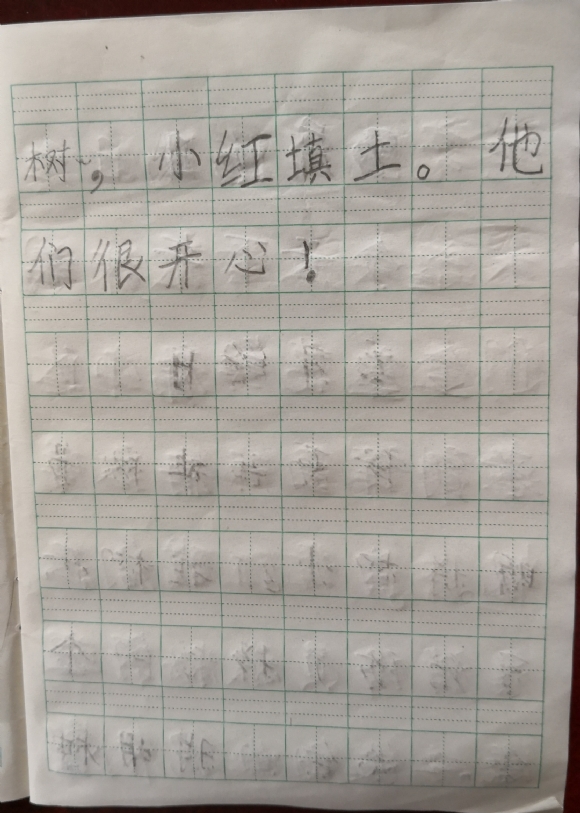 树，小红填土。他
们很开心！